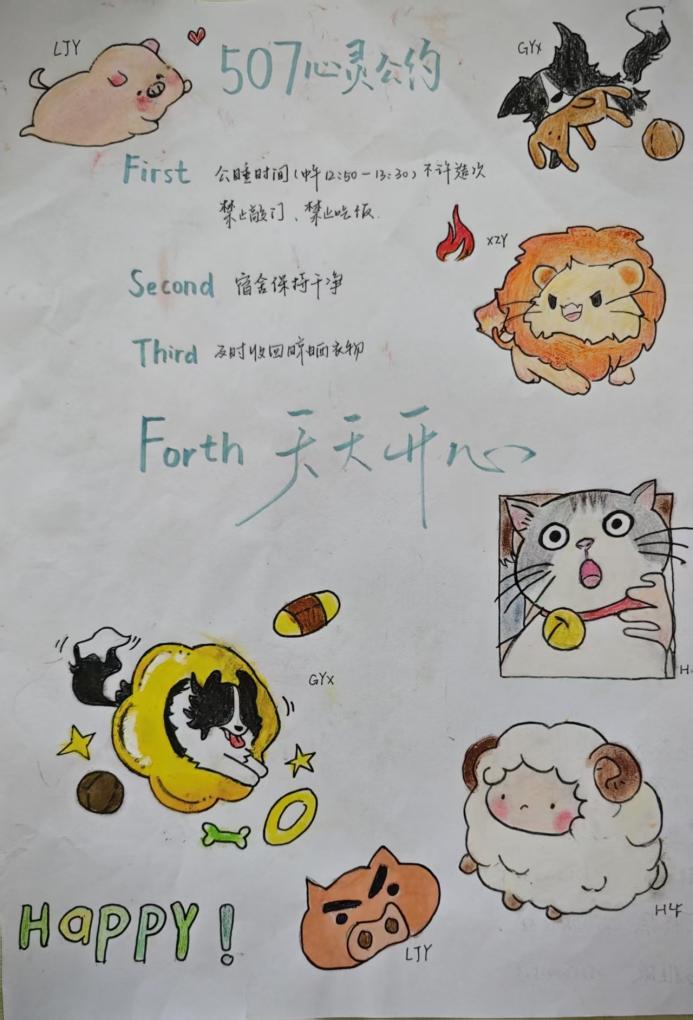 LJY
507心灵公约
GYX
First 公睡时间(中午12:50-13:30)不许造次
禁止敲门、禁止吃饭.
XZY
Second 宿舍保持干净
Third 及时收回晾晒衣物
Forth 天天开心
GYX
HAPPY!
LJY